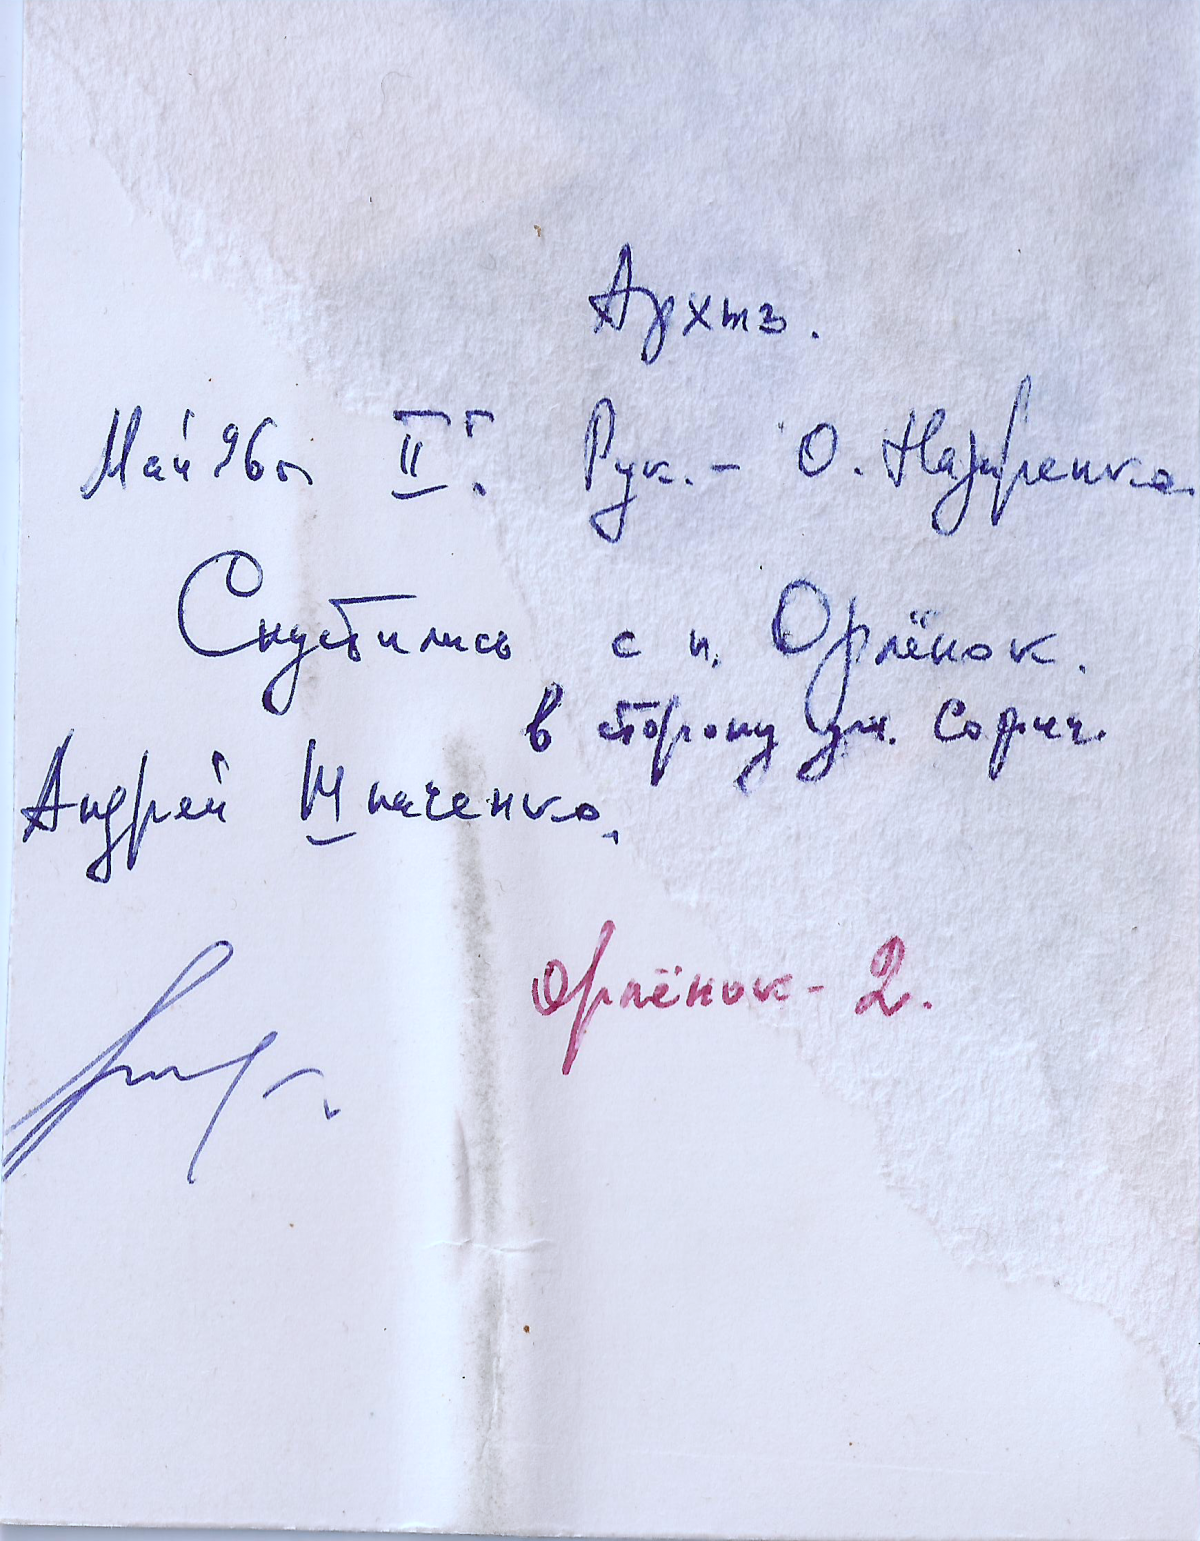 Архыз.
Май 96г. II г. Рук. - О. Назаренко.
Спустились с п. Орлёнок.
в сторону ущ.
Андрей Ткаченко.
Орлёнок - 2.